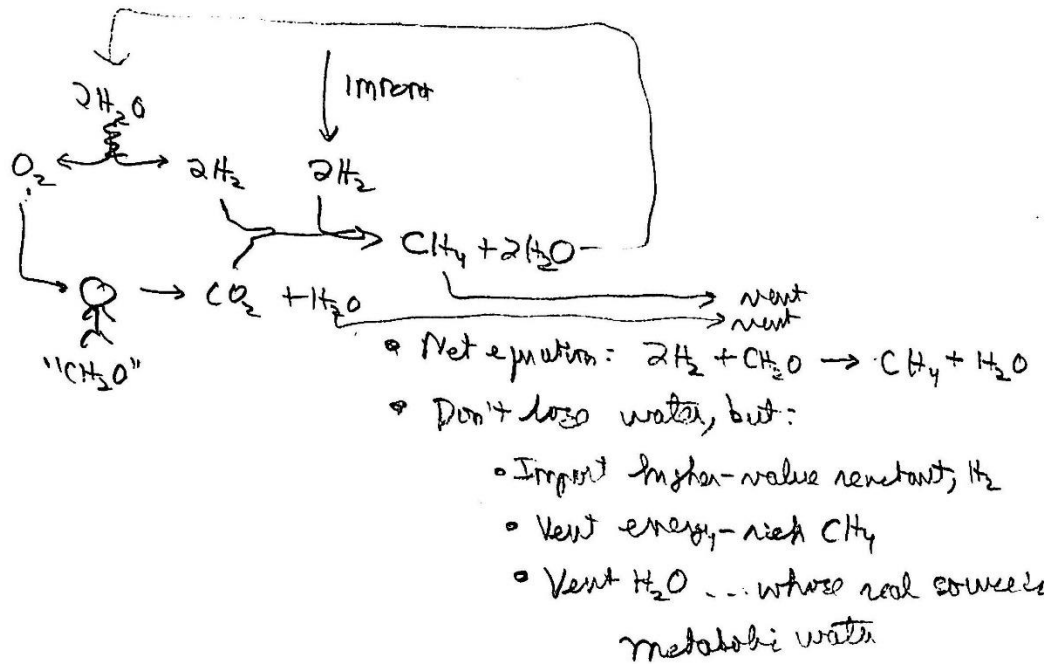 Import
2H₂O
O₂ 2H₂ 2H₂
CH₄ + 2H₂O
CO₂ + H₂O
vent
vent
"CH₂O"
• Net equation: 2H₂ + CH₂O → CH₄ + H₂O
• Don't lose water, but:
• Import higher-value reactant, H₂
• Vent energy-rich CH₄
• Vent H₂O ... whose real source is
metabolic water